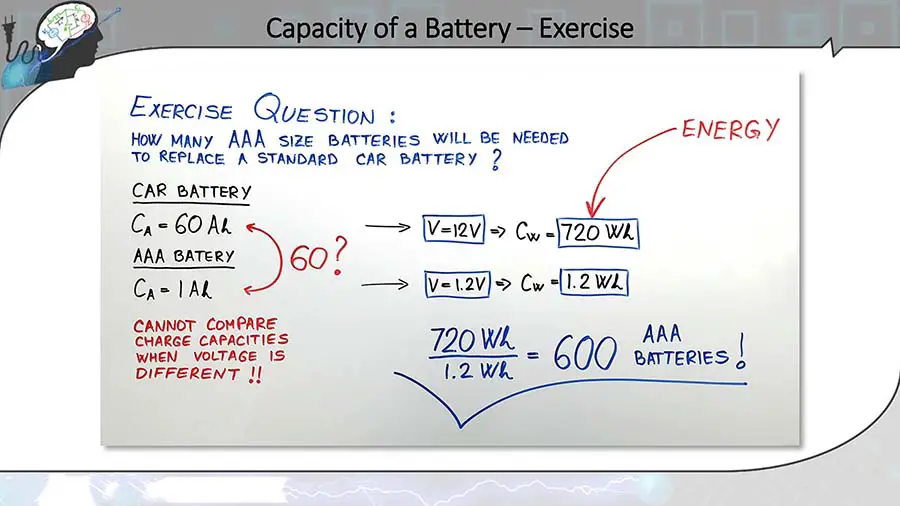 Capacity of a Battery – Exercise
EXERCISE QUESTION :
HOW MANY AAA SIZE BATTERIES WILL BE NEEDED
TO REPLACE A STANDARD CAR BATTERY ?
ENERGY
CAR BATTERY
C_A = 60 Ah → V = 12V ⇒ C_W = 720 Wh
60?
AAA BATERY
C_A = 1 Ah → V = 1.2V ⇒ C_W = 1.2 Wh
CANNOT COMPARE
CHARGE CAPACITIES
WHEN VOLTAGE IS
DIFFERENT !!
720 Wh / 1.2 Wh = 600 AAA BATTERIES !